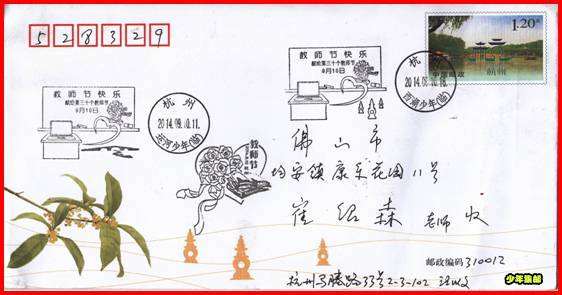 528329
1.20元
中国邮政
杭州
教师节快乐
献给第三十个教师节
9月10日
杭州
2014.09.10.11
教师节快乐
献给第三十个教师节
9月10日
杭州
西湖少年(临)
教师节
佛山市
均安镇康乐花园11号
崔绍森 老师 收
邮政编码310012
杭州马塍路33号2-3-102
少年集邮